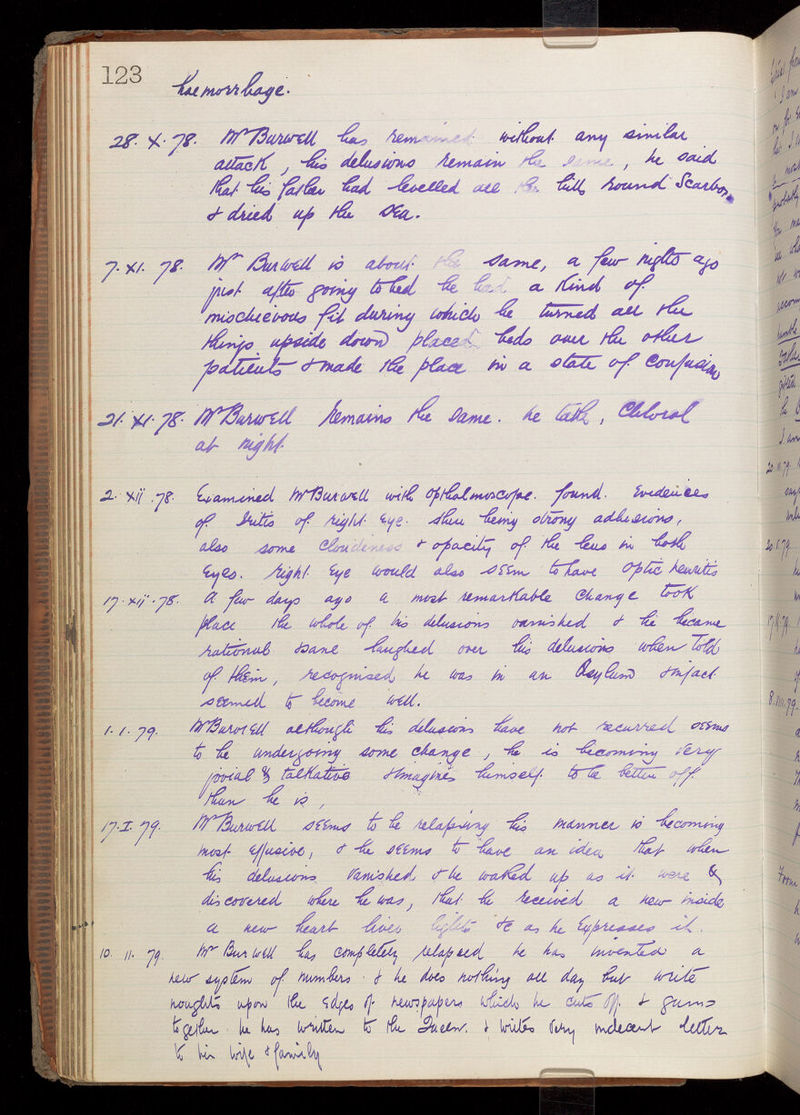 123
haemorrhage.
28. X. 78. Mr Burwell has remained without any similar
attack, his delusions remain the same, he said
that his father had levelled all the hills round Scarboro
& dried up the sea.
7. XI. 78. Mr Burwell is about the same, a few nights ago
just after going to bed he had a kind of
mischievous fit during which he turned all the
things upside down placed beds over the other
patients & made the place in a state of confusion
21. XI. 78. Mr Burwell remains the same. he takes, Chloral
at night.
2. XII. 78. Examined Mr Burwell with opthalmoscope. found. Evidences
of Iritis of right Eye. there being strong adhesions,
also some cloudiness & opacity of the lens in both
Eyes. Right Eye would also seem to have optic neuritis
17. XII. 78. A few days ago a most remarkable change took
place the whole of his delusions vanished & he became
rational & sane laughed over his delusions when told
of them, recognised he was in an Asylum & in fact
seemed to become well.
1. 1. 79. Mr Burwell although his delusions have not recurred seems
to be undergoing some change, he is becoming very
jovial & talkative & imagines himself to be better off
than he is,
17. I. 79. Mr Burwell seems to be relapsing his manner is becoming
most effusive, & he seems to have an idea that when
his delusions vanished & he waked up as it were &
discovered where he was, that he received a new inside
a new heart liver lights &c as he Expresses it.
10. 11. 79. Mr Burwell has completely relapsed he has invented a
new system of numbers & he does nothing all day but write
noughts upon the Edges of newspapers which he cuts off & gums
together he has written to the Queen. & writes very indecent letters
to his wife & family